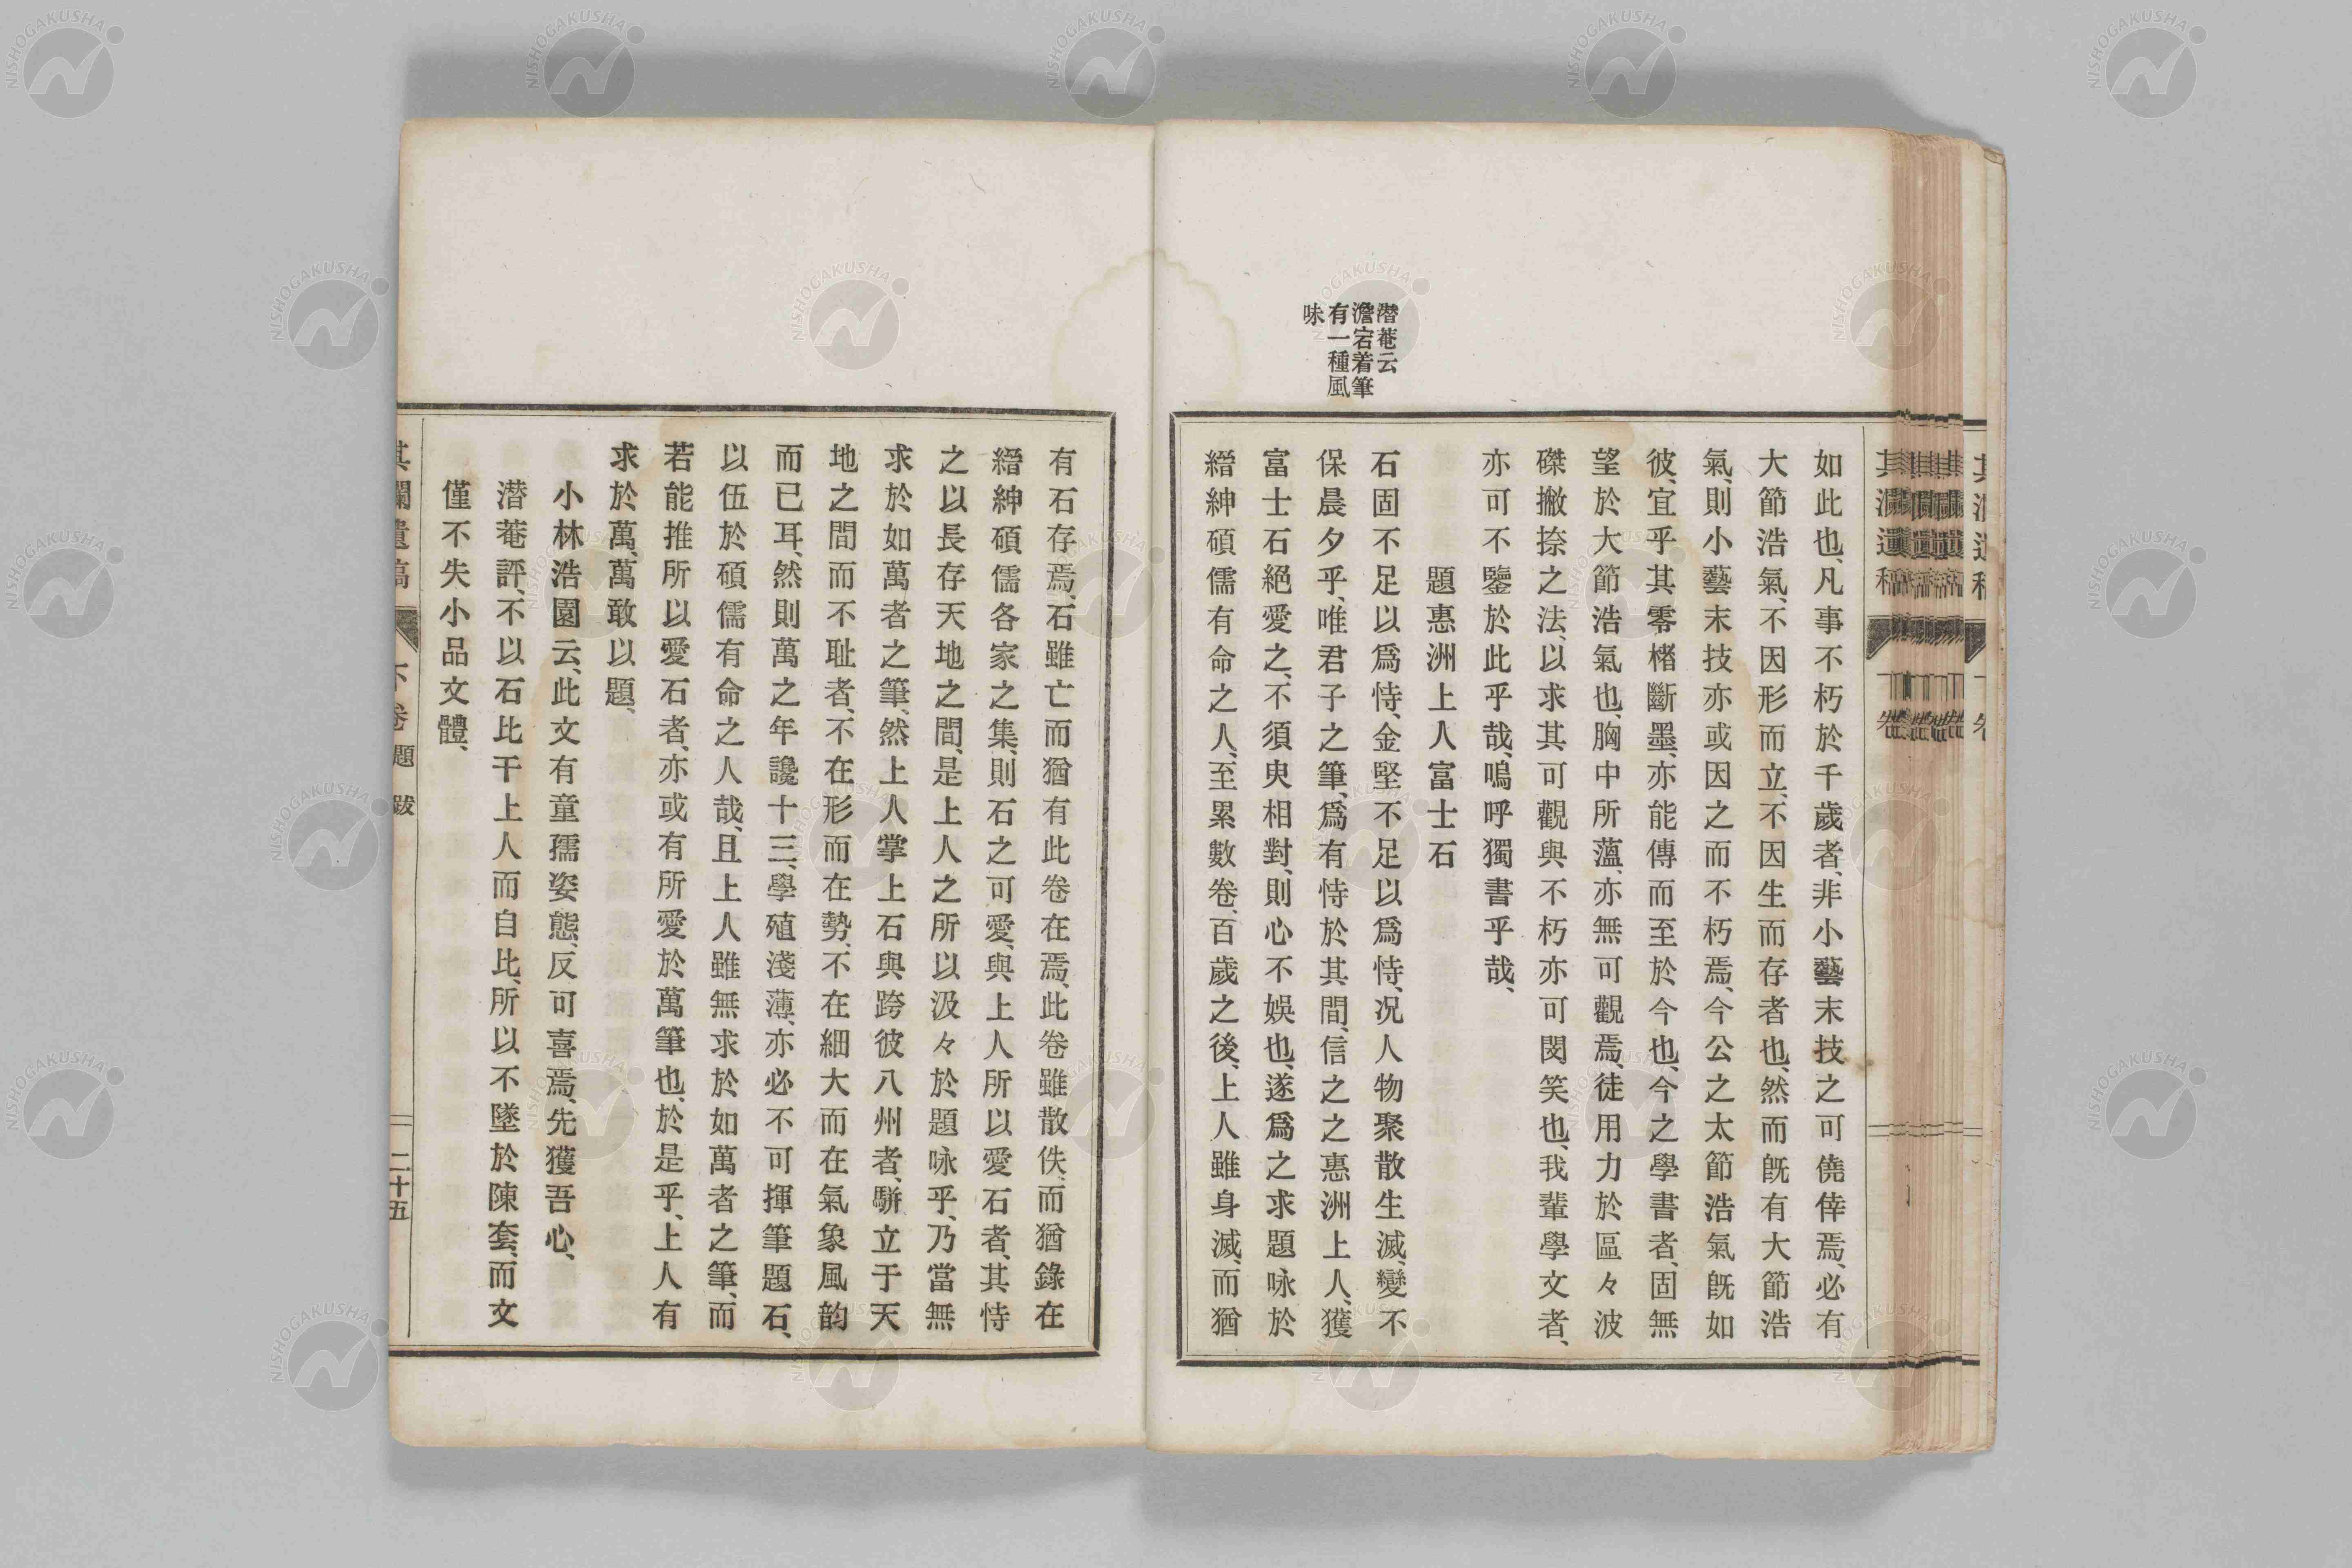 如此也、凡事不朽於千歲者、非小藝末技之可僥倖焉、必有
大節浩氣、不因形而立、不因生而存者也、然而旣有大節浩
氣、則小藝末技亦或因之而不朽焉、今公之太節浩氣旣如
彼、宜乎其零楮斷墨、亦能傳而至於今也、今之學書者、固無
望於大節浩氣也、胸中所薀、亦無可觀焉、徒用力於區々波
磔撇捺之法、以求其可觀與不朽亦可閔笑也、我輩學文者、
亦可不鑒於此乎哉、嗚呼獨書乎哉、
題惠洲上人富士石
潜菴云
澹宕着筆
有一種風
味
石固不足以爲恃、金堅不足以爲恃、况人物聚散生滅、變不
保晨夕乎、唯君子之筆、爲有恃於其間、信之之惠洲上人、獲
富士石絕愛之、不須臾相對、則心不娛也、遂爲之求題咏於
縉紳碩儒有命之人、至累數卷、百歲之後、上人雖身滅、而猶
有石存焉、石雖亡而猶有此卷在焉、此卷雖散佚、而猶錄在
縉紳碩儒各家之集、則石之可愛、與上人所以愛石者、其恃
之以長存天地之間、是上人之所以汲々於題咏乎、乃當無
求於如萬者之筆、然上人掌上石與跨彼八州者、駢立于天
地之間而不耻者、不在形而在勢、不在細大而在氣象風韵
而已耳、然則萬之年讒十三、學殖淺薄、亦必不可揮筆題石、
以伍於碩儒有命之人哉、且上人雖無求於如萬者之筆、而
若能推所以愛石者、亦或有所愛於萬筆也、於是乎、上人有
求於萬、萬敢以題、
小林浩園云、此文有童孺姿態、反可喜焉、先獲吾心、
潜菴評、不以石比干上人而自比、所以不墜於陳套、而文
僅不失小品文體、
其瀾遺稿 下卷 題跋 二十五
NISHOGAKUSHA